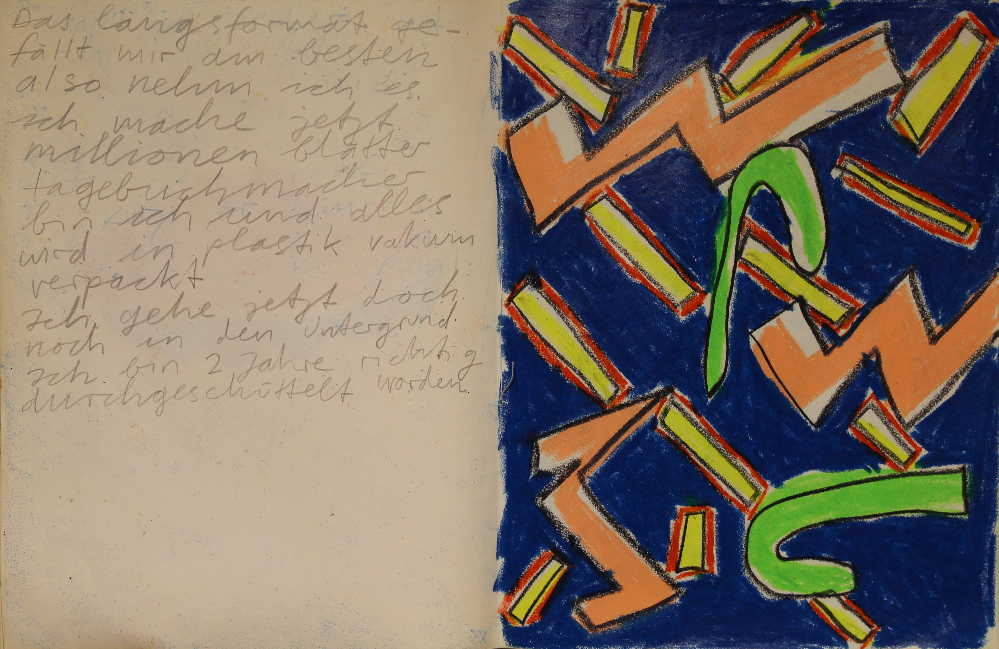 Das längsformat ge-
fällt mir am besten
also nehm ich es
ich mache jetzt
millionen blätter
tagebuchmacher
bin ich und alles
wird in plastik vakum
verpackt
Ich gehe jetzt doch
noch in den Untergrund.
Ich bin 2 Jahre richtig
durchgeschüttelt worden.